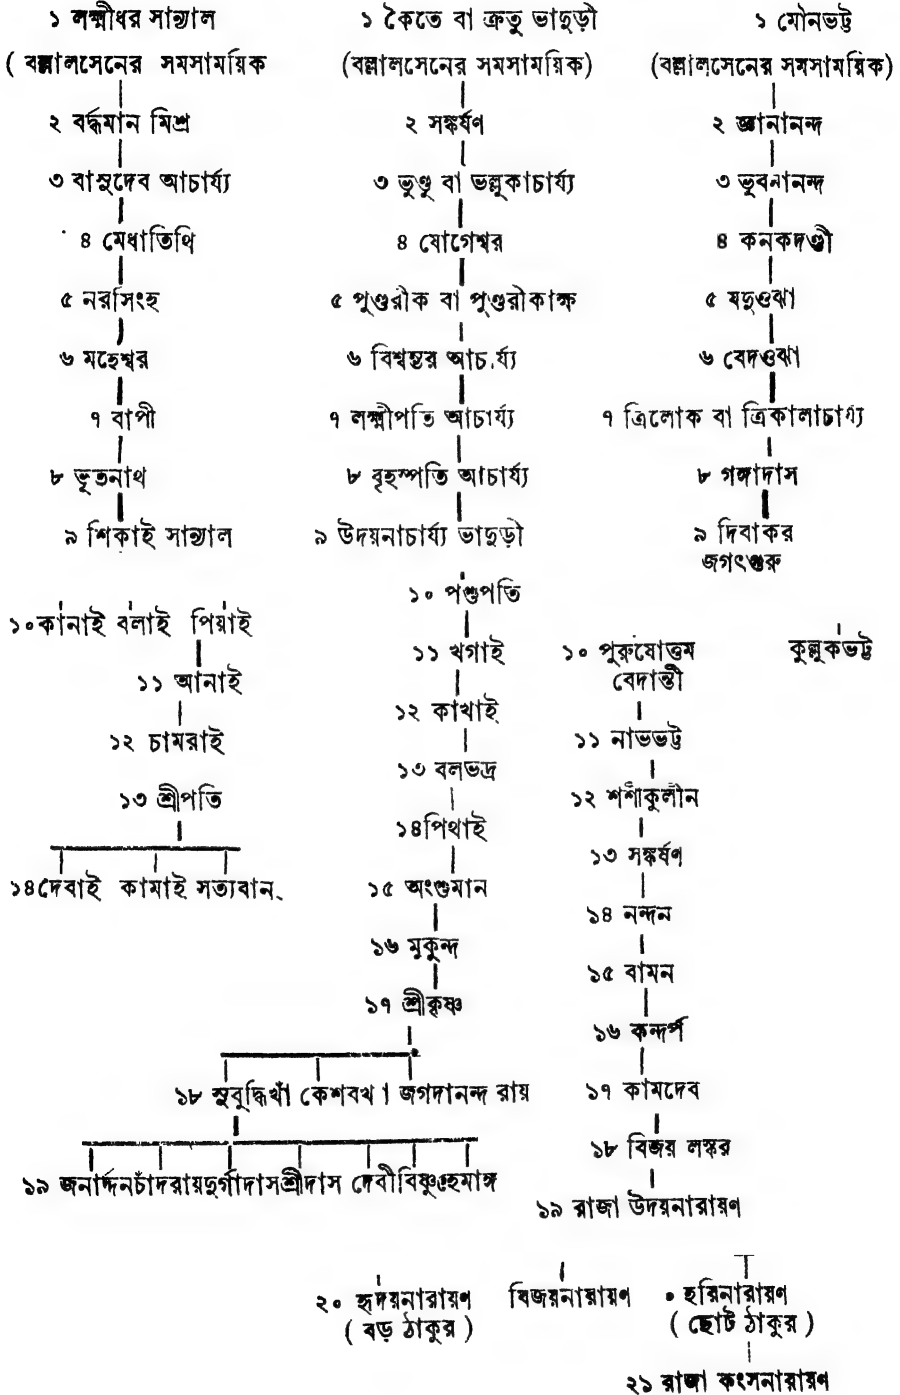 ১ লক্ষ্মীধর সান্যাল
( বল্লালসেনের সমসাময়িক
২ বর্দ্ধমান মিশ্র
৩ বাসুদেব আচার্য্য
৪ মেধাতিথি
৫ নরসিংহ
৬ মহেশ্বর
৭ বাপী
৮ ভূতনাথ
৯ শিকাই সান্যাল
১০কানাই বলাই পিয়াই
১১ আনাই
১২ চামরাই
১৩ শ্রীপতি
১৪দেবাই কামাই সত্যবান
১ কৈতে বা ক্রতু ভাদুড়ী
(বল্লালসেনের সমসাময়িক)
২ সঙ্কর্ষণ
৩ ভুণ্ডু বা ভল্লুকাচার্য্য
৪ যোগেশ্বর
৫ পুণ্ডরীক বা পুণ্ডরীকাক্ষ
৬ বিশ্বম্ভর আচার্য্য
৭ লক্ষ্মীপতি আচার্য্য
৮ বৃহস্পতি আচার্য্য
৯ উদয়নাচার্য্য ভাদুড়ী
১০ পশুপতি
১১ খগাই
১২ কাখাই
১৩ বলভদ্র
১৪পিথাই
১৫ অংশুমান
১৬ মুকুন্দ
১৭ শ্রীকৃষ্ণ
১৮ সুবুদ্ধিখাঁ কেশবখাঁ জগদানন্দ রায়
১৯ জনার্দ্দন চাঁদরায় দুর্গাদাস শ্রীদাস দেবী বিষ্ণু হেমাঙ্গ
১ মৌনভট্ট
(বল্লালসেনের সমসাময়িক)
২ জ্ঞানানন্দ
৩ ভুবনানন্দ
৪ কনকদণ্ডী
৫ যদুওঝা
৬ বেদওঝা
৭ ত্রিলোক বা ত্রিকালাচার্য্য
৮ গঙ্গাদাস
৯ দিবাকর
জগৎগুরু
১০ পুরুষোত্তম কুল্লুকভট্ট
বেদান্তী
১১ নাভভট্ট
১২ শশাঁকুলীন
১৩ সঙ্কর্ষণ
১৪ নন্দন
১৫ বামন
১৬ কন্দর্প
১৭ কামদেব
১৮ বিজয় লস্কর
১৯ রাজা উদয়নারায়ণ
২০ হৃদয়নারায়ণ বিজয়নারায়ণ হরিনারায়ণ
( বড় ঠাকুর ) ( ছোট ঠাকুর )
২১ রাজা কংসনারায়ণ